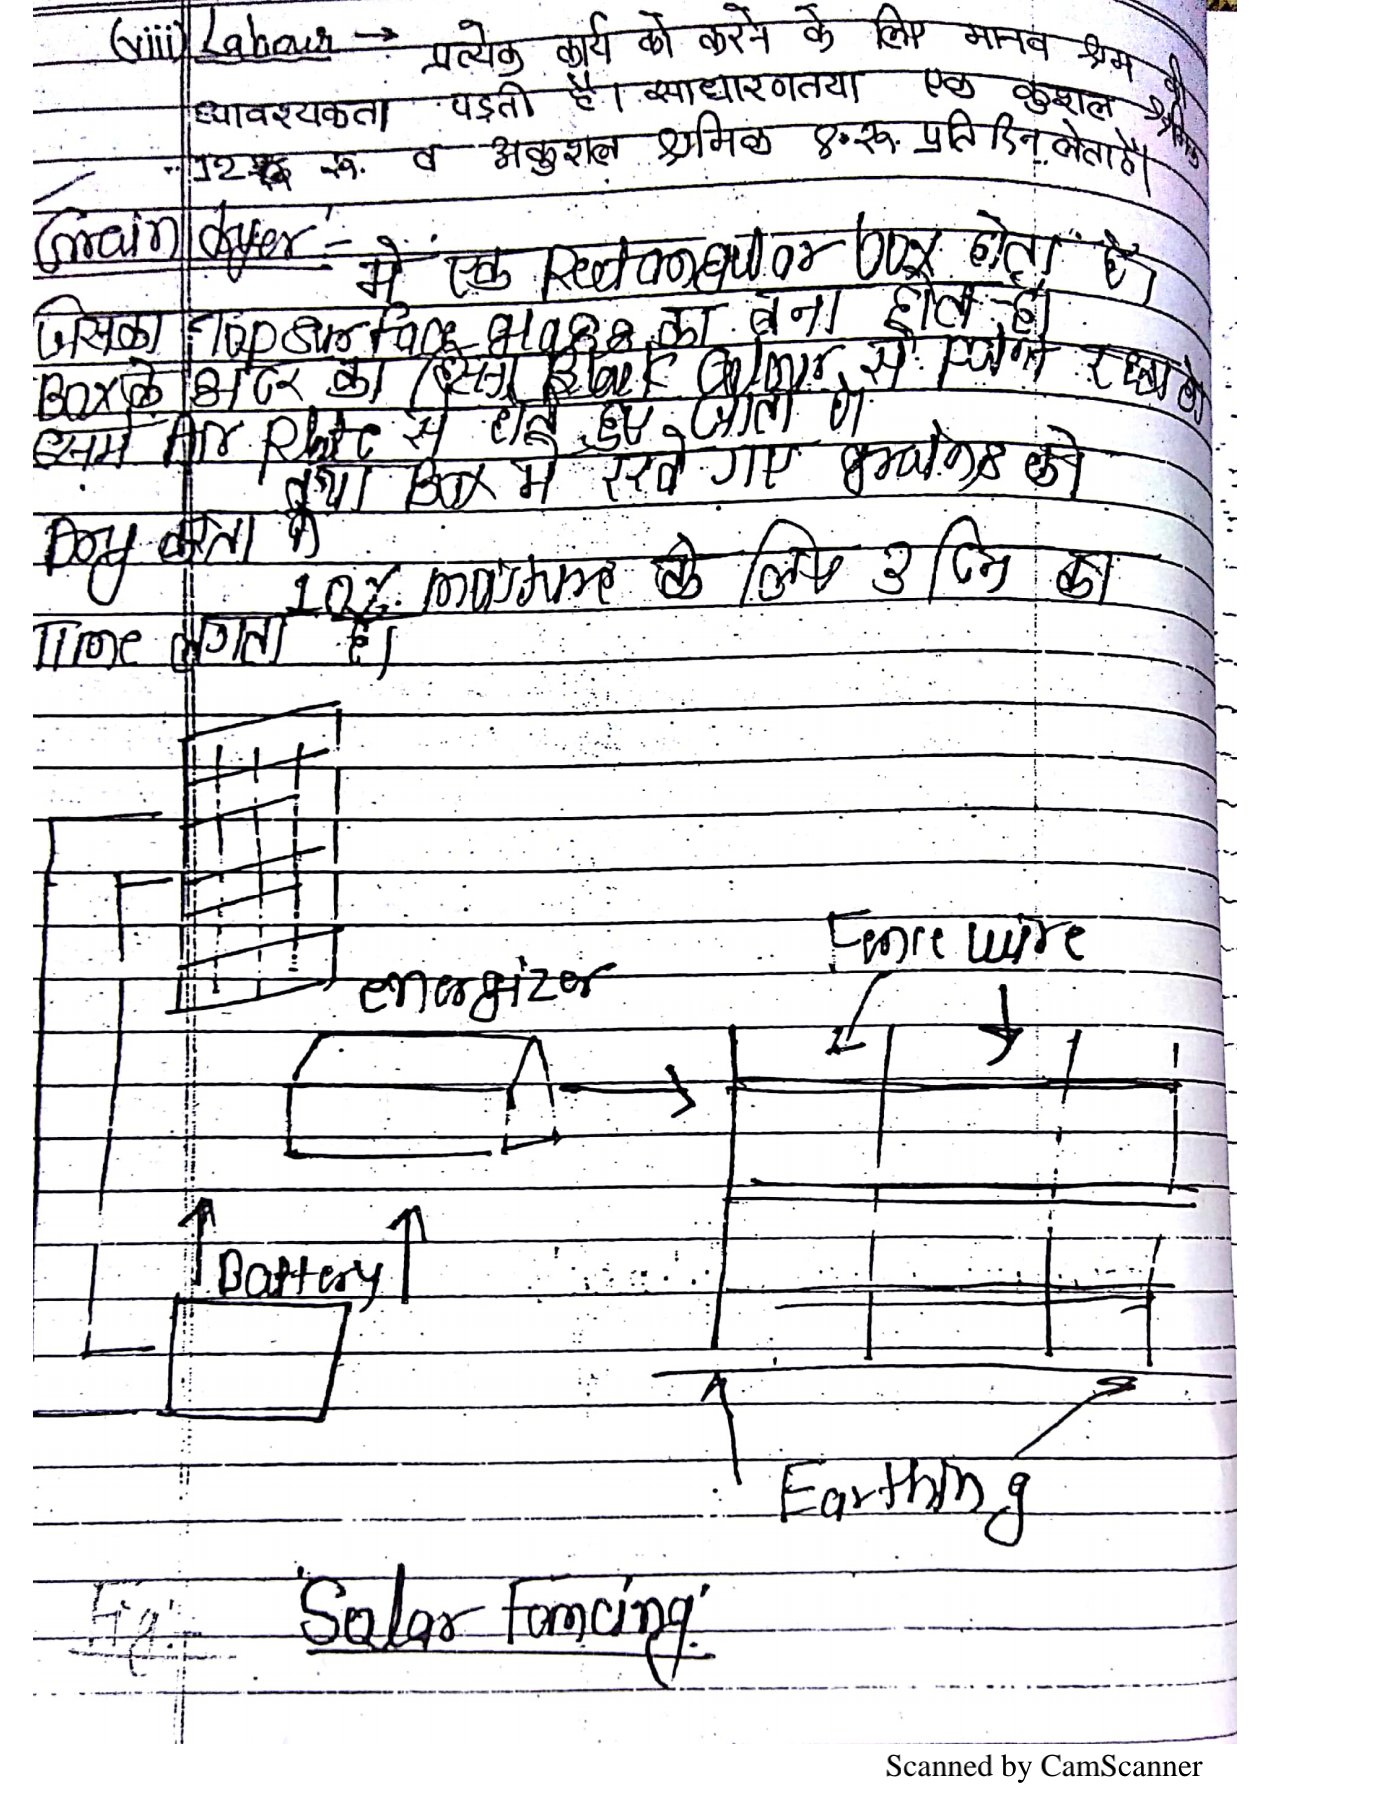 (viii) Labour → प्रत्येक कार्य को करने के लिए मानव श्रम की
आवश्यकता पड़ती है। साधारणतया एक कुशल श्रमिक
12 रू. व अकुशल श्रमिक 8.रू. प्रति दिन लेता है।
Grain dryer :-
में एक Rectangular box होता है।
जिसका Top surface glass का बना होता है।
Box के अंदर का हिस्सा Black Colour से Paint रहता है
इसमें Air Plate से होते हुए जाता है
तथा Box में रखे गए grains को
Dry करता है
10% moisture के लिए 3 दिन का
Time लगता है।
Fence wire
energizer
Battery
Earthing
Fig:- Solar Fencing
Scanned by CamScanner